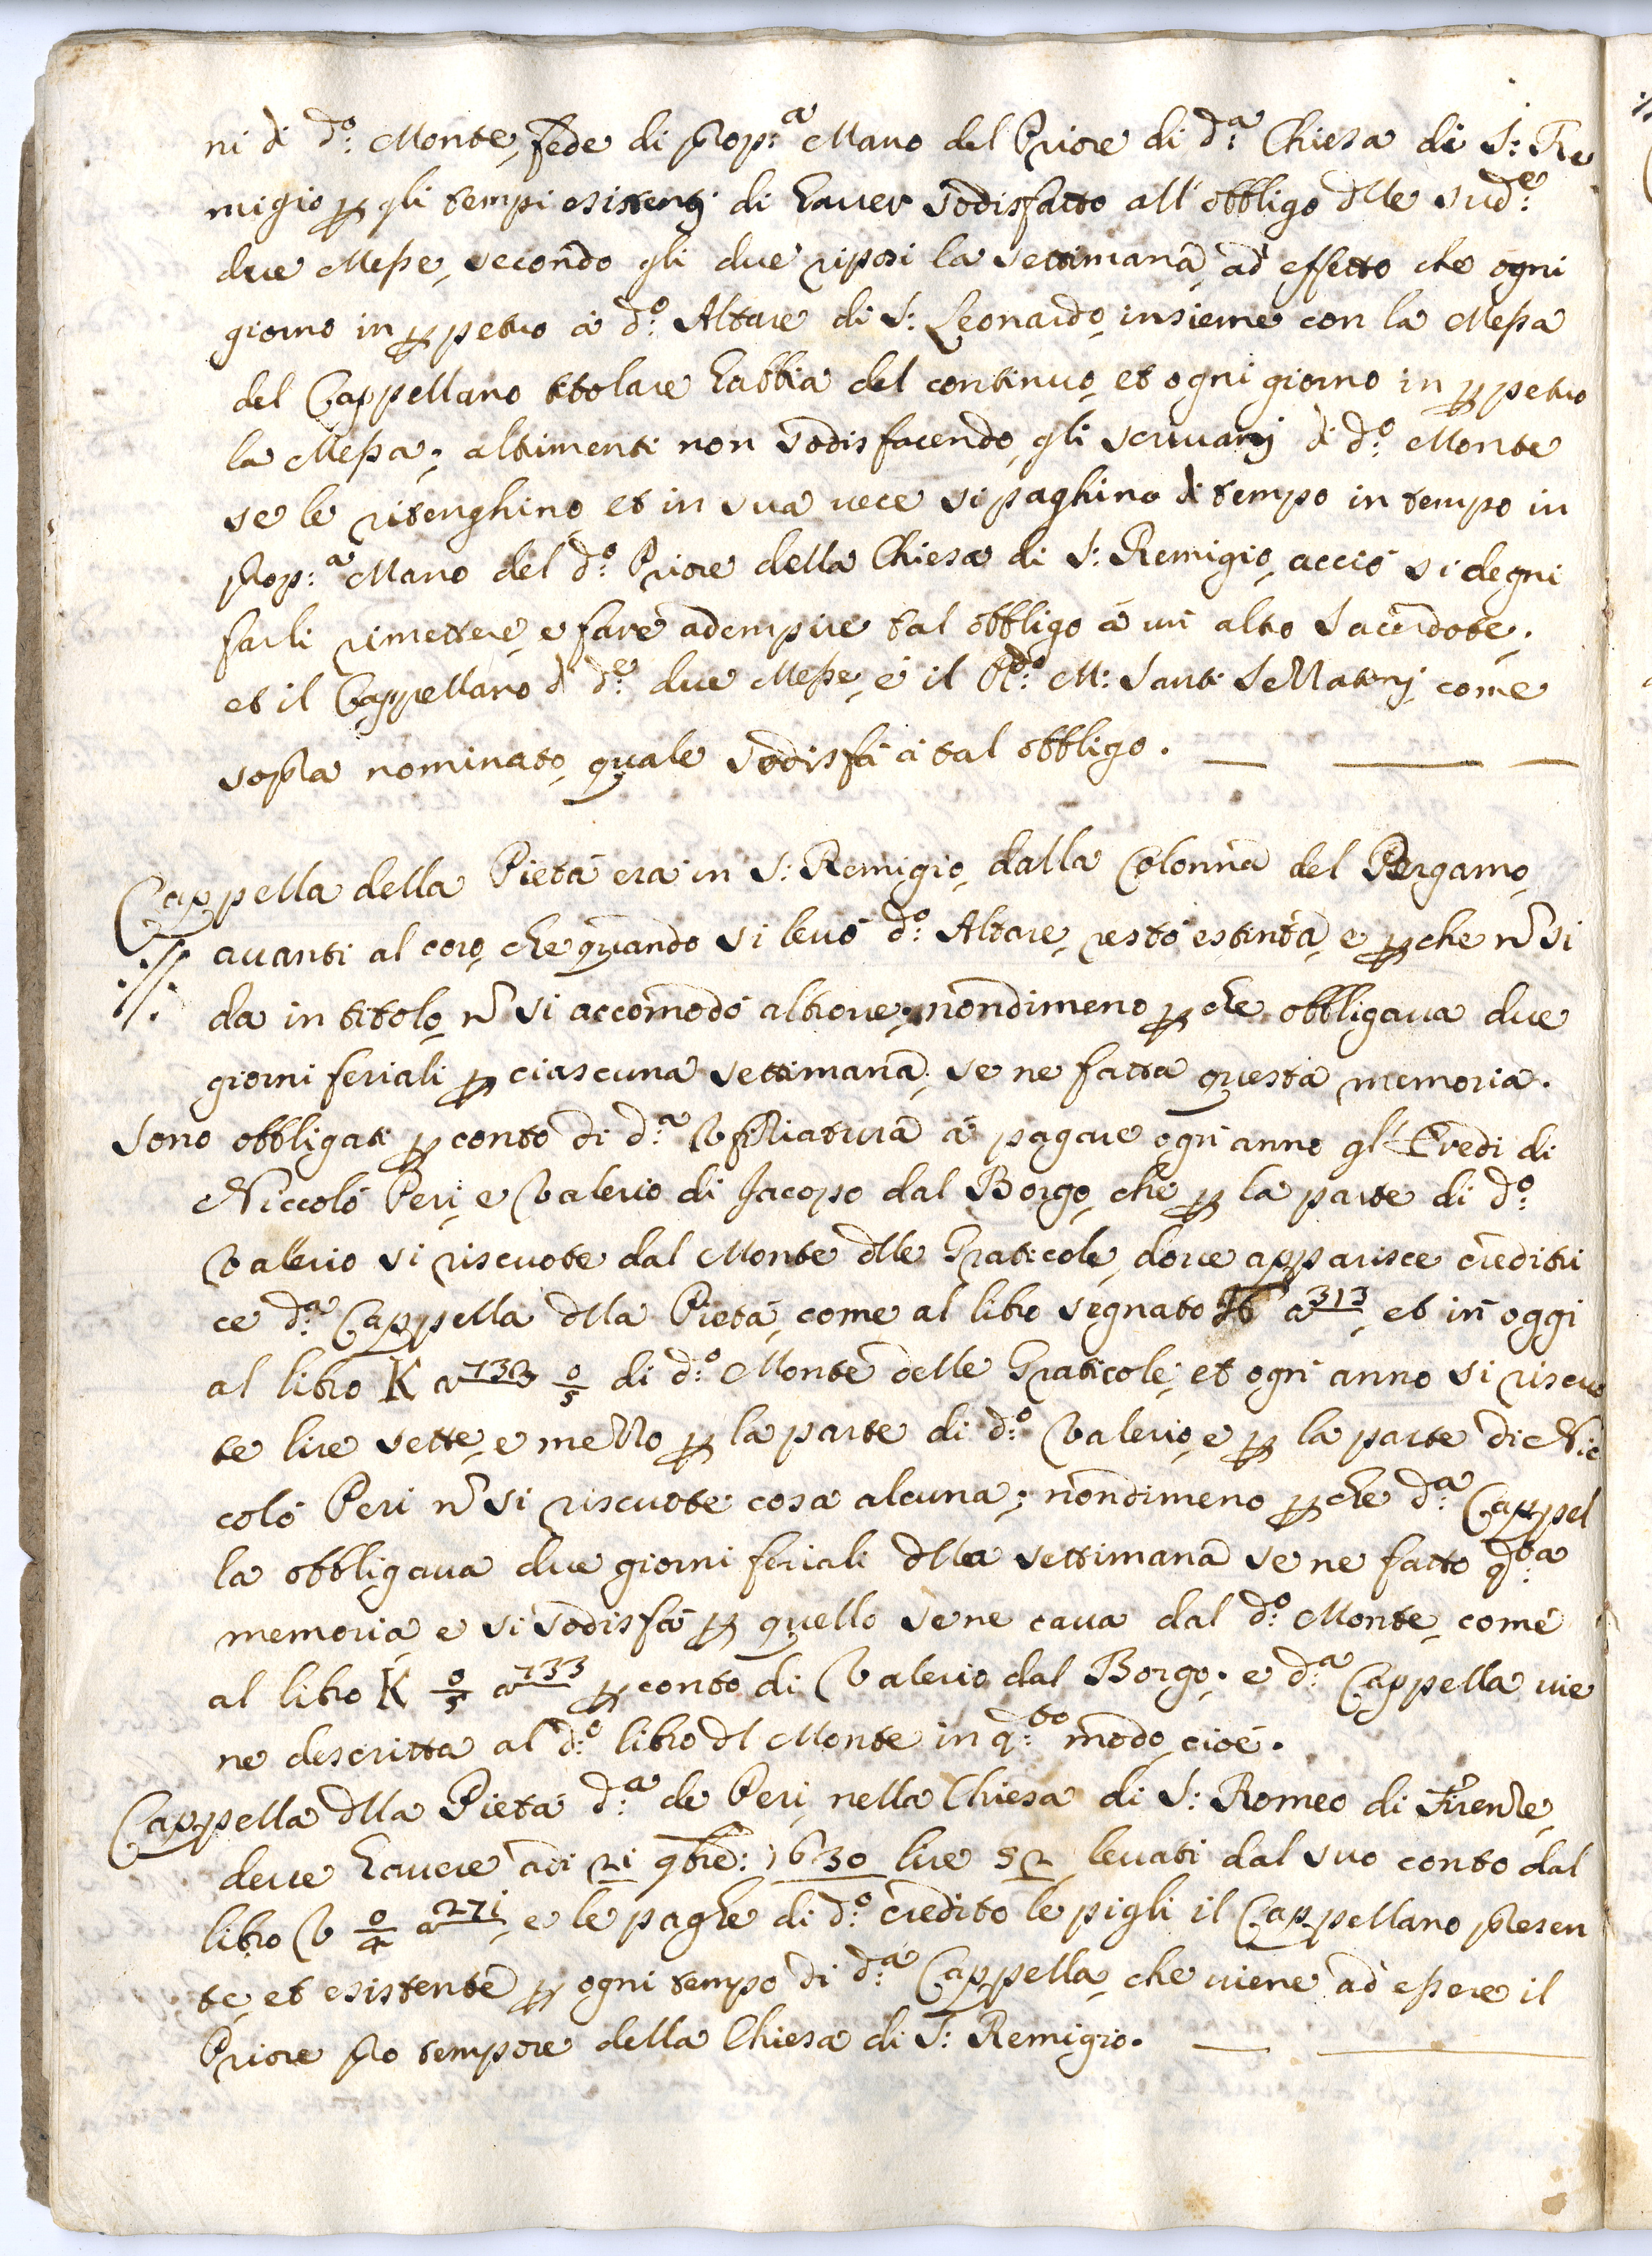 ni di d:º Monte, fede di prop:ª Mano del Priore di d:ª Chiesa di S: Re
migio p gli tempi esistenti di hauer sodisfatto all'obbligo dlle sud:ᵉ
due Messe, secondo gli due riposi la settimana, ad effetto che ogni
giorno in ppetuo à d:º Altare di S: Leonardo, insieme con la Messa
del Cappellano titolare habbia del continuo, et ogni giorno in ppetuo
la Messa; altimenti non sodisfacendo, gli scriuani di d:º Monte
se le ritenghino, et in sua uece si paghino di tempo in tempo in
prop:ª Mano del d:º Priore della Chiesa di S: Remigio, acciò si degni
farli rimettere, e fare adempire tal obbligo à un altro Sacerdote.
et il Cappellano di d:ᵉ due Messe, è il R:ᵈº M: Santi come
sopra nominato, quale sodisfà à tal obbligo.
Cappella della Pietà era in S: Remigio, dalla Colonna del Pergamo,
auanti al coro, che quando si leuò d:º Altare, restò estinta, e pche ñ si
da in titolo, ñ si accomodò altroue; nondimeno p che obbligaua due
giorni feriali p ciascuna settimana, se ne fatta questa memoria.
Sono obbligati p conto di d:ª Vfitiatura à pagare ogn'anno gl'Eredi di
Niccolò Peri, e Valerio di Jacopo dal Borgo, che p la parte di d:º
Valerio si riscuote dal Monte dlle Graticole, doue apparisce creditri
ce d:ª Cappella dlla Pietà, come al libro segnato a 313, et in oggi
al libro K a 733 0/5 di d:º Monte delle Graticole, et ogni anno si riscuo
te lire sette, e mezzo p la parte di d:º Valerio, e p la parte di Nic
colò Peri ñ si riscuote cosa alcuna; nondimeno p che d:ª Cappel
la obbligaua due giorni feriali dlla settimana se ne fatto q:ᵗª
memoria, e si sodisfà p quello se ne caua dal d:º Monte, come
al libro K 0/5 a 733 p conto di Valerio dal Borgo. e d:ª Cappella uie
ne descritta al d:º libro dl Monte in q:ᵗº modo, cioè.
Cappella dlla Pietà d:ª de Peri, nella Chiesa di S: Romeo di Firenze,
deue hauere adi 21 9bre: 1630 lire 52 leuati dal suo conto dal
libro V 0/4 a 271, e le paghe di d:º credito le pigli il Cappellano presen
te, et esistente p ogni tempo di d:ª Cappella, che uiene ad essere il
Priore pro tempore della Chiesa di S: Remigio.